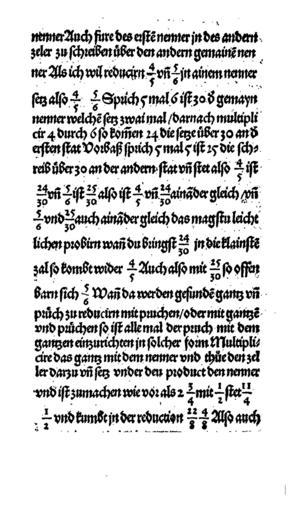 nenner Auch fure des erstē nenner in des andern
zeler zu schreiben über den andern gemainē nen
ner Als ich wil reducirn 4/5 vñ 5/6 in ainem nenner
setz also 4/5 5/6 Sprich 5 mal 6 ist 30 ð gemayn
nenner welchē setz zwai mal / darnach multipli
cir 4 durch 6 so komēn 24 die setze über 30 an ð
ersten stat Vorbaß sprich 5 mal 5 ist 25 die sch⸗
reib über 30 an der andern stat vñ stet also 4/5 ist
24/30 vñ 5/6 ist 25/30 also ist 4/5 vñ 24/30 aināder gleich / vñ
5/6 vnd 25/30 auch aināder gleich das magstu leicht
lichen probirn wañ du bringst 24/30 in die klainste
zal so kombt wider 4/5 Auch also mit 25/30 so offen
barn sich 5/6 Wañ da werden gesundē gantz vñ
prüch zu reducirn mit pruchen / oder mit gantzē
vnd prüchen so ist alle mal der pruch mit dem
gantzen einzurichten in solcher form Multipli⸗
cire das gantz mit dem nenner vnd thüe den zel
ler darzu vñ setz vnder deu product den nenner
vnd ist zumachen wie vor als 2 3/4 mit 1/2 stet 11/4
1/2 vnd kumbt in der reduction 22/8 4/8 Also auch